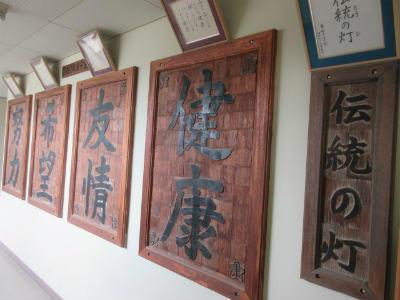 努力
希望
友情
健康
伝統の灯
伝統の灯